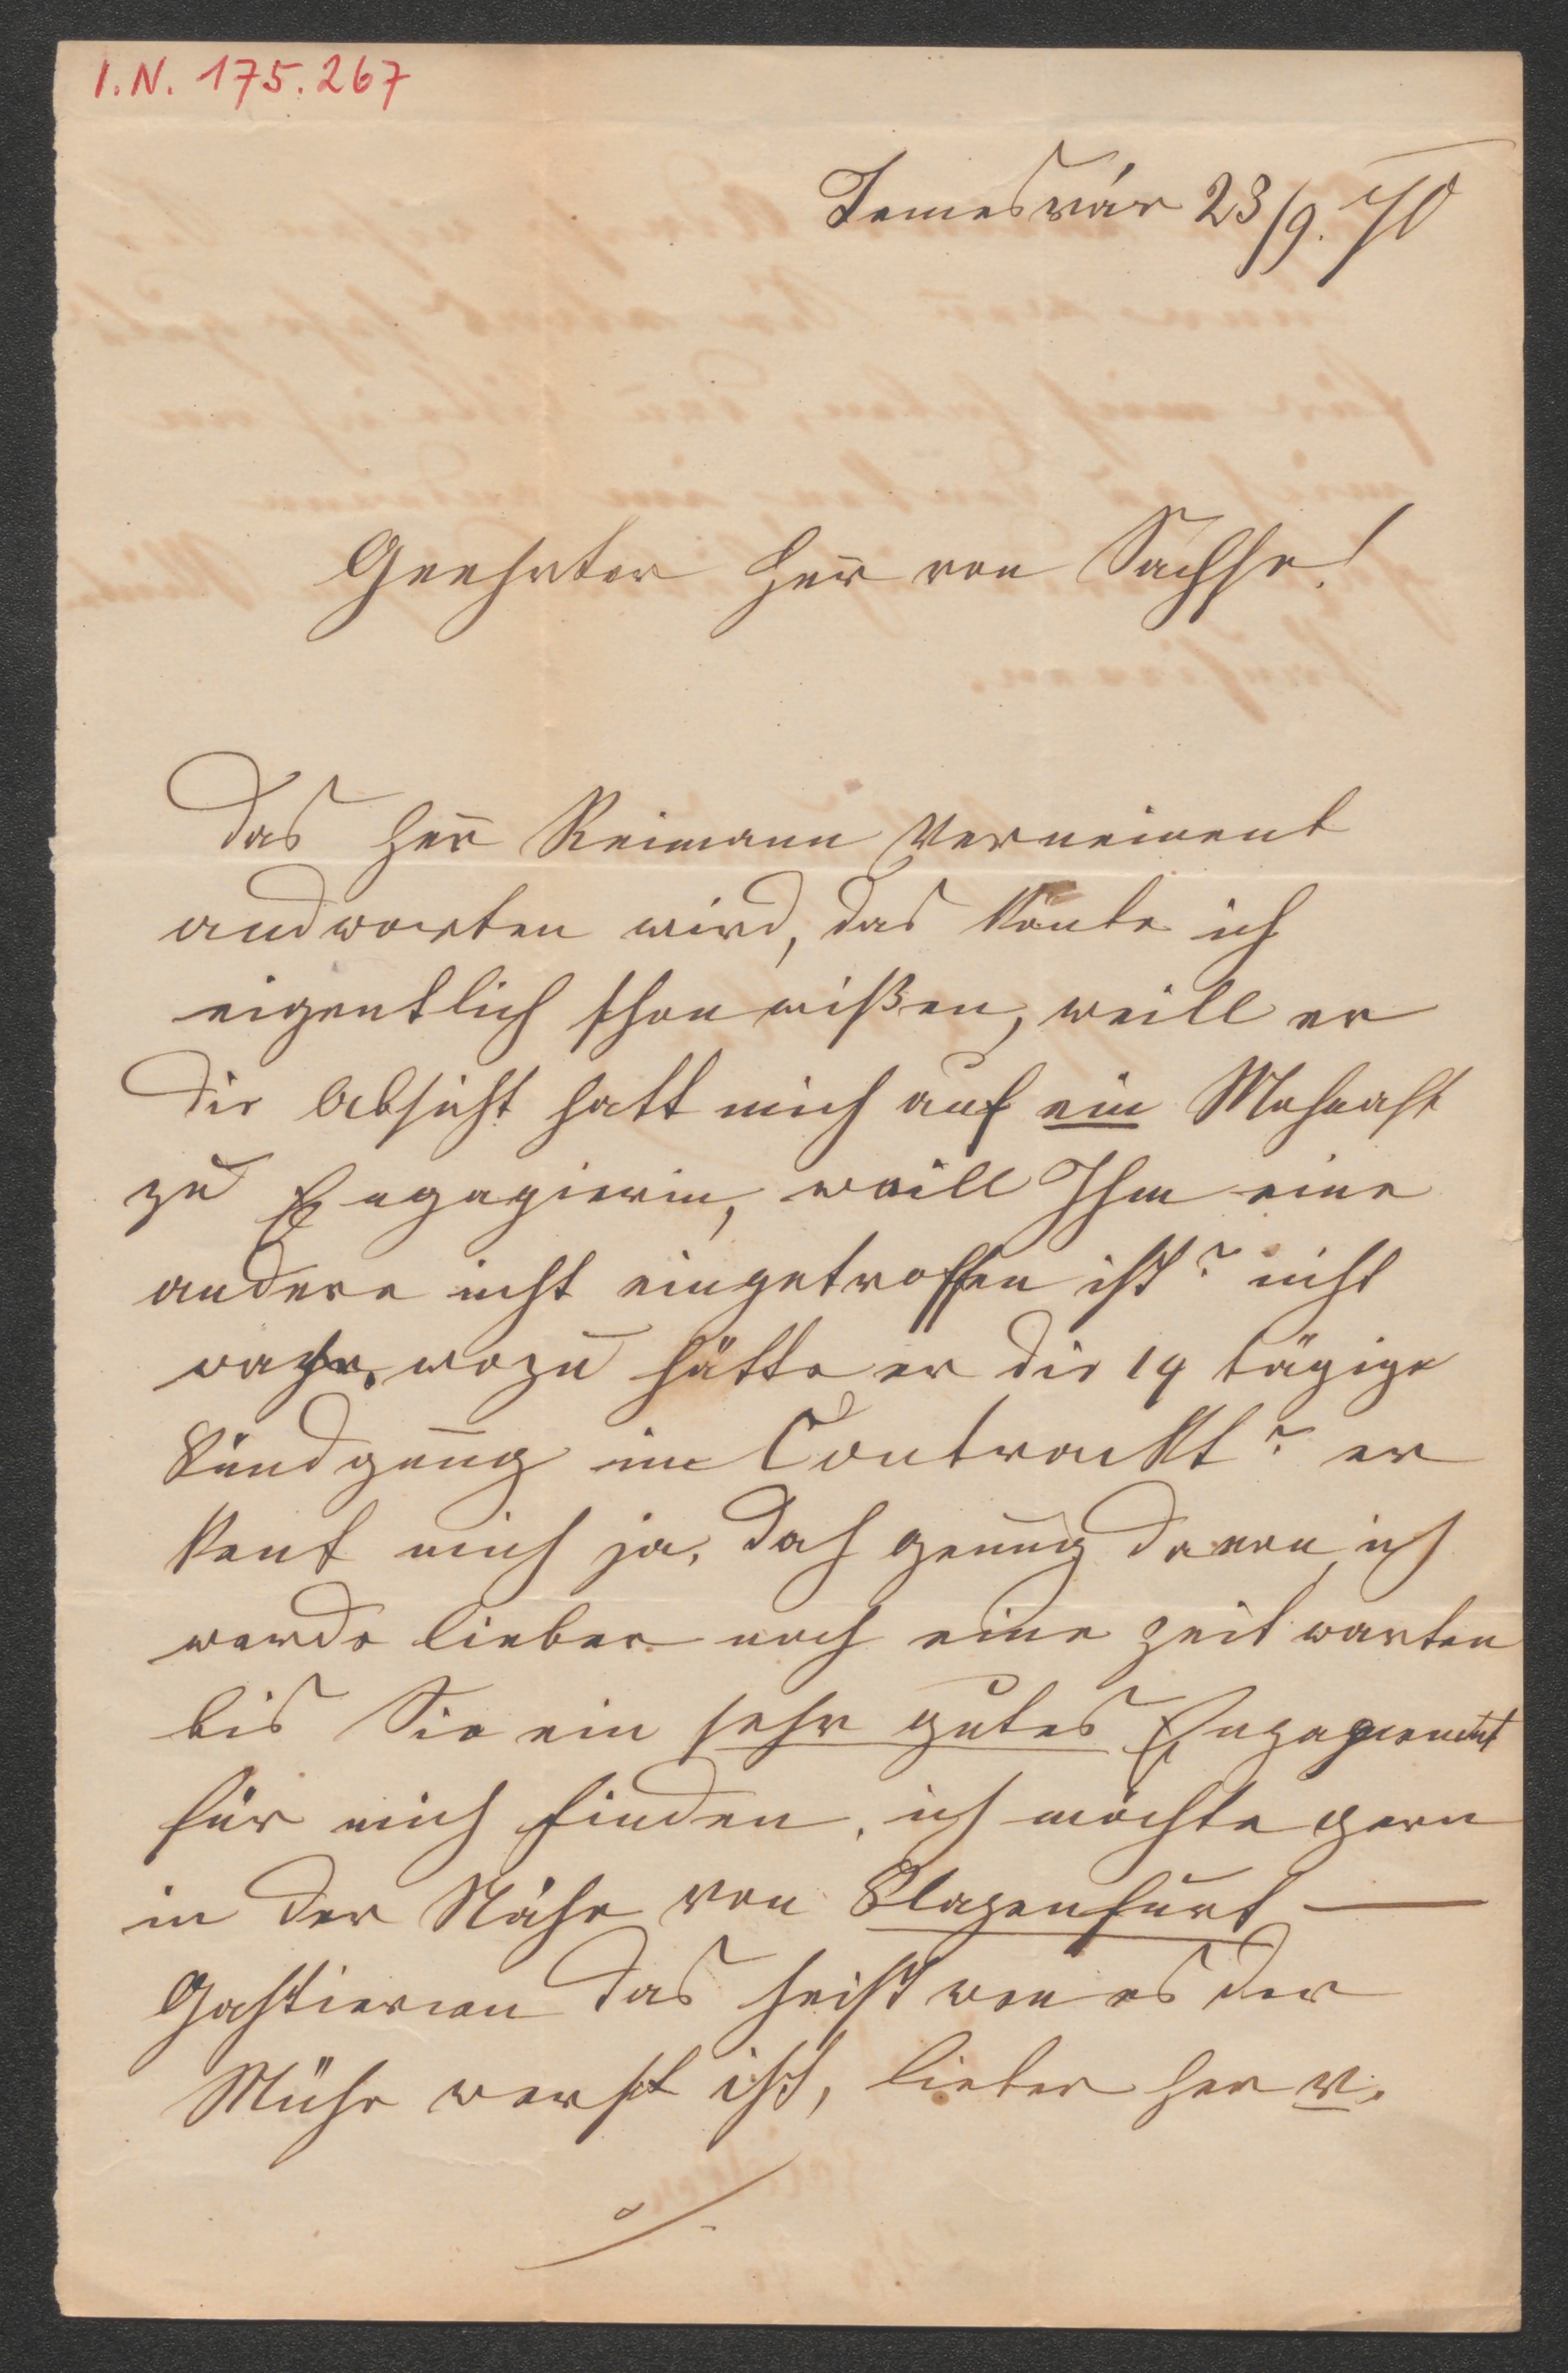 I.N. 175.267
Temesvár 23/9. 70
Geehrter Herr von Sachse!
Das Herr Reimann Verneinent
andworten wird, das konte ich
eigentlich schon wißen, weill er
die Absicht hatt mich auf ein Mohnath
zu Engagieren, weill Ihm eine
andere nicht eingetroffen ist? nicht
wahr, wozu hätte er die 14 tägige
Kündgung im Contrackt? er
kent mich ja, doch genug davon, ich
werde lieber noch eine Zeit warten
bis Sie ein sehr gutes Engagement
für mich finden, ich möchte gern
in der Nähe von Klagenfurt —
Gastieren das heist wen es der
Mühe werth ist, lieber Her v.
./.